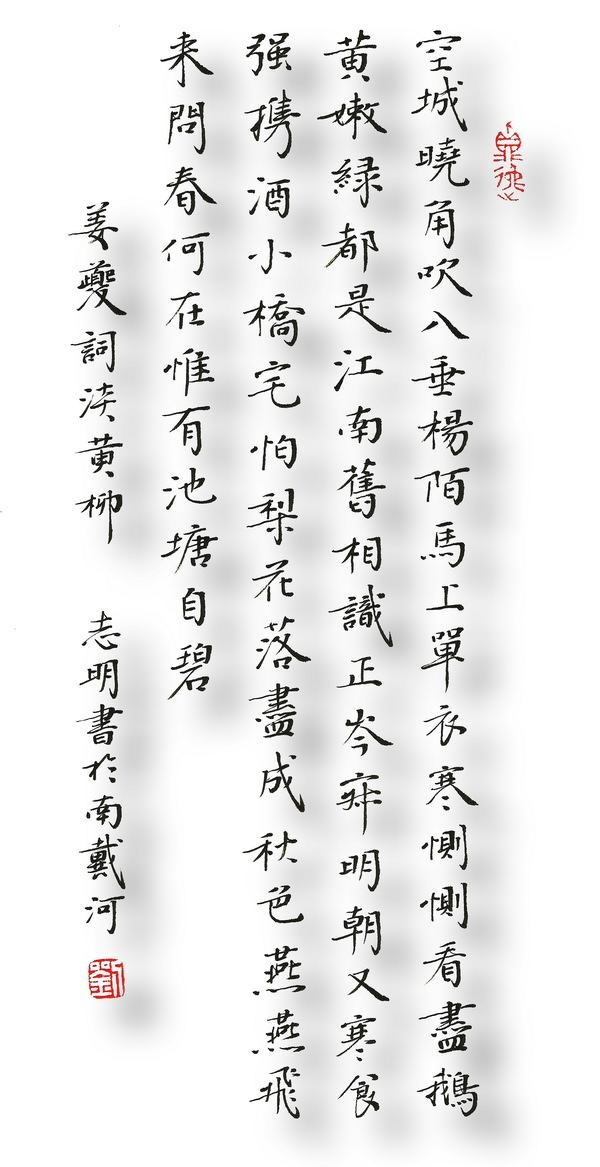 空城曉角吹入垂楊陌馬上單衣寒惻惻看盡鵝
黄嫩緑都是江南舊相識正岑寂明朝又寒食
强携酒小橋宅怕梨花落盡成秋色燕燕飛
来問春何在惟有池塘自碧
姜夔詞淡黄柳 志明書於南戴河
劉